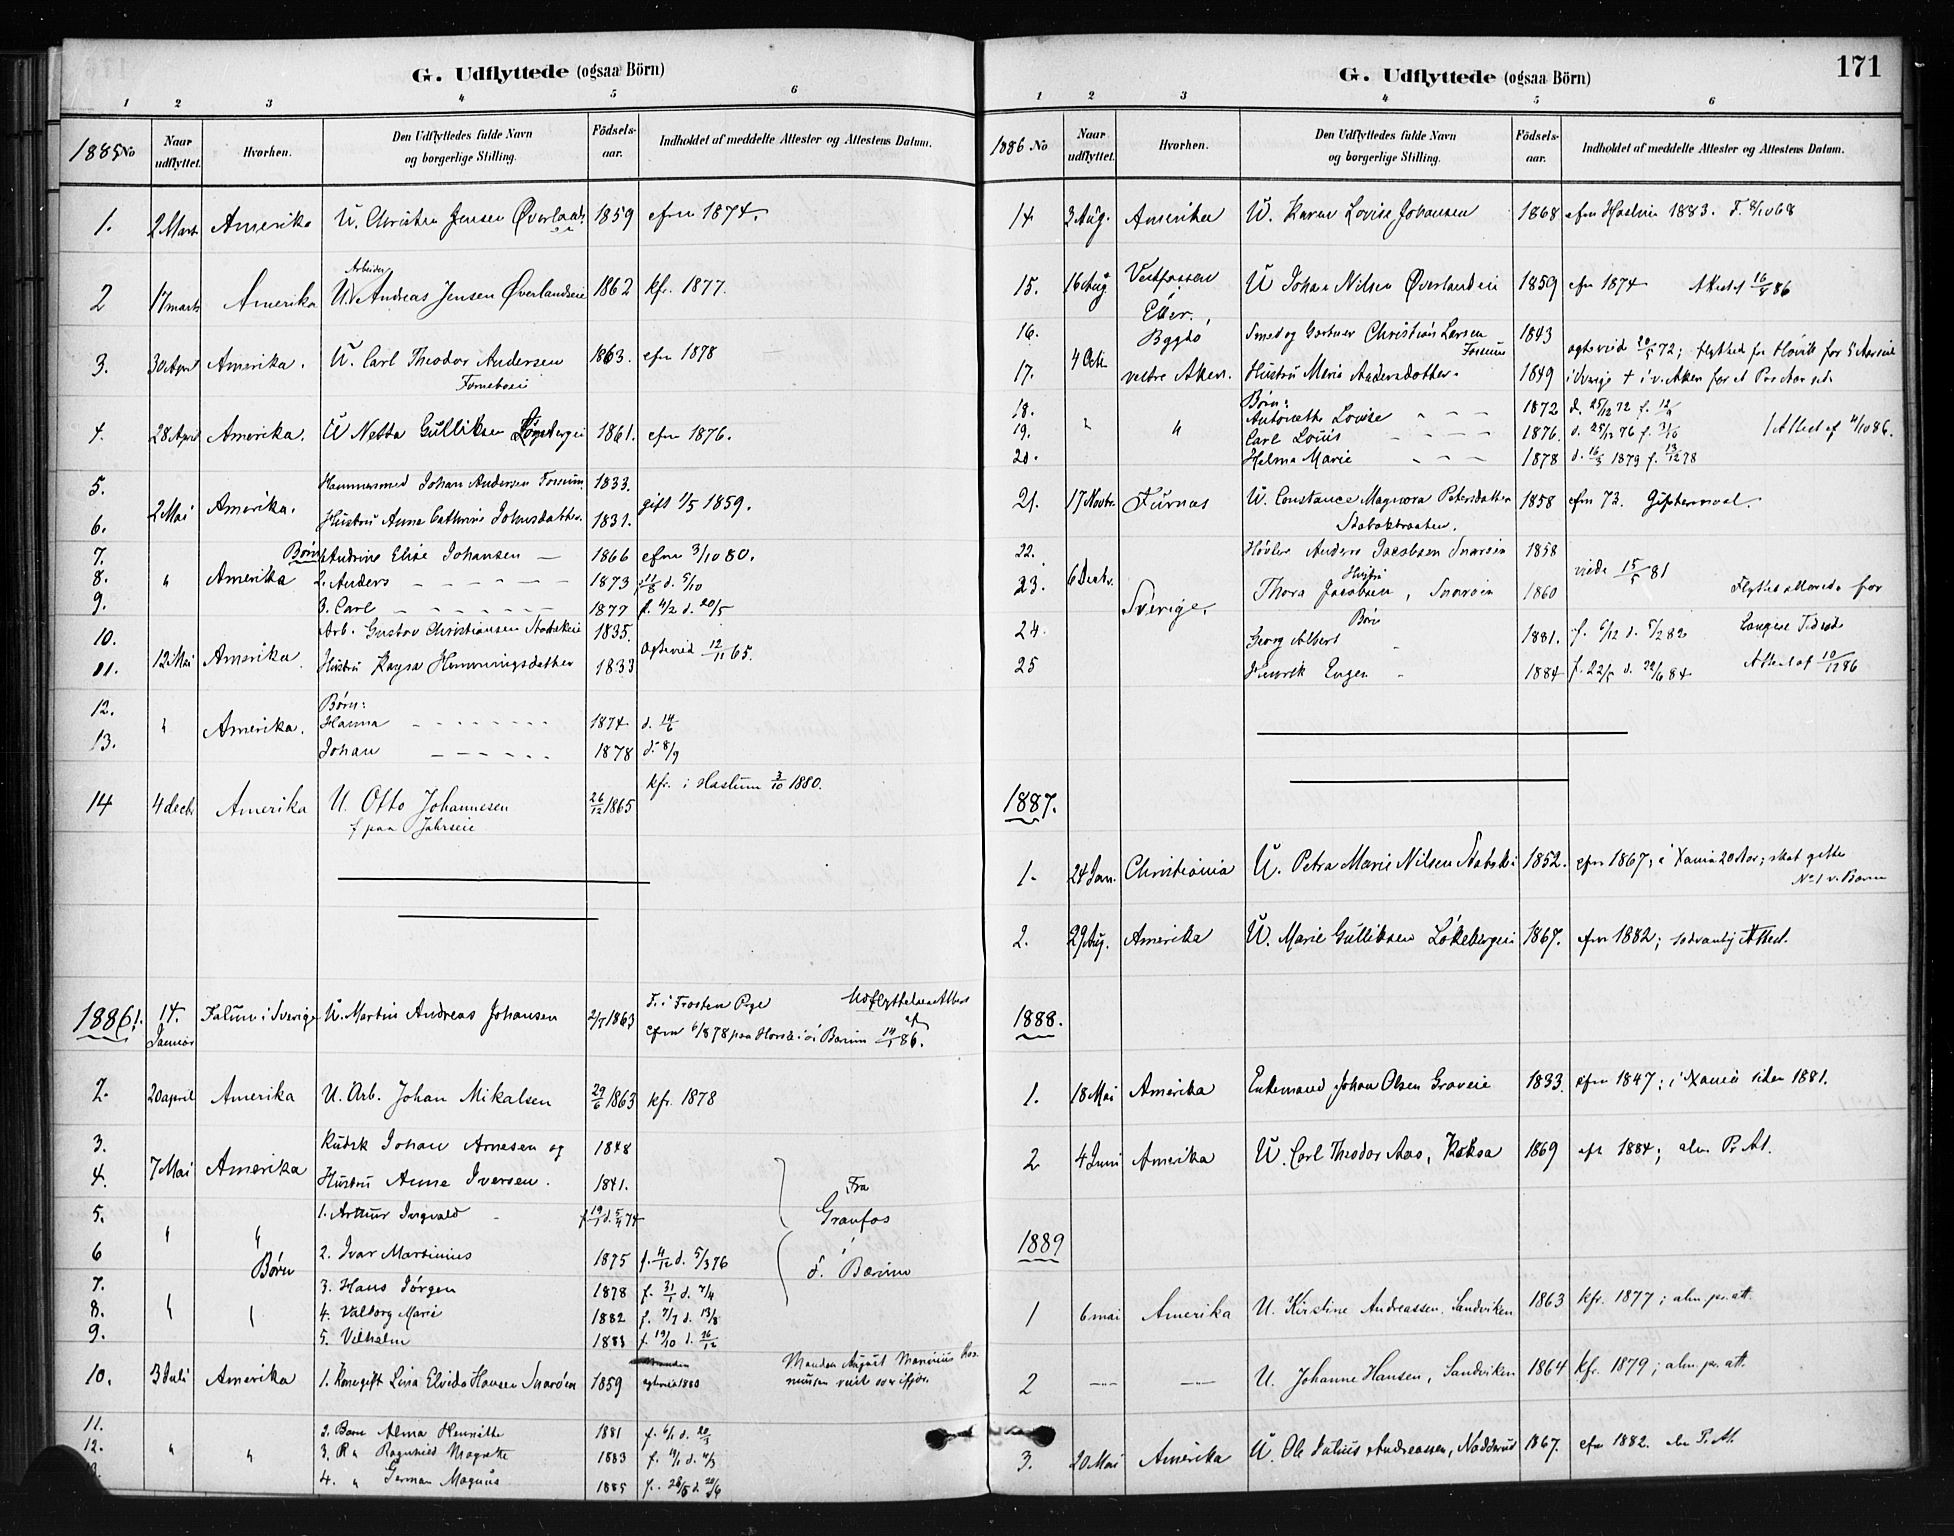 G. Udflyttede (ogsaa Börn)
1 2 3 4 5 6
1885 No
Naar udflyttet.
Hvorhen.
Den Udflyttedes fulde Navn og borgerlige Stilling.
Födsels-aar.
Indholdet af meddelte Attester og Attestens Datum.
1. 2 Marts Amerika U. Christen Jensen 1859 cfm 1874.
2 17 marts Amerika Arbeider U. Andreas Jensen Øverlandseie 1862 kfr. 1877.
3. 30 April Amerika. U. Carl Theodor Andersen 1863. cfm 1878
Forneboei
4. 28 April Amerika. U Netta Gulliksen 1861. cfm 1876.
5. Hammersmed Johan Andersen Fossum. 1833.
2 Mai Amerika. gift 1/5 1859.
6. Hustru Anne Cathrine Johnsdatter. 1831.
7. Børn 1. Andrine Elise Johansen — 1866 cfm 3/10 80.
8. " Amerika 2. Anders - - - - - 1873 11/8 d. 5/10
9. 3. Carl - - - - - 1877 f. 4/2 d. 20/5
10. Arb. Gustav Christiansen Stabekeie 1835.
12 Mai Amerika. Egteviet 12/11 65.
11. Hustru Kaysa Hemmingsdatter 1833
12. Børn:
Hanna - - - - - 1874 d. 14/6
" Amerika.
13. Johan - - - - - 1878 d. 8/9
14 4 decbr Amerika U. Otto Johannesen 26/12 1865 kfr. i Haslum 3/10 1880.
f paa Jahrseie
1886 1. 14. Januar Falun i Sverige U. Martin Andreas Johansen 2/7 1863 F. i Frosten Prgj Udflyttelses Attest
cfm 6/ 1878 paa i Bærum 14/1 86.
2. 20 april Amerika U. Arb. Johan Mikalsen 29/6 1863 kfr. 1878
3. Kudsk Johan Arnesen og 1848
7 Mai Amerika
4. Hustru Anne Iversen. 1841.
Fra Granfos i Bærum
5. 1. Arthur Ingvald f 19/1 d. 5/4 74
6 Børn 2. Ivar Martinius 1875 f. 4/12 d. 5/3 76
7. 3. Hans Jørgen 1878 f. 31/1 d. 7/4
8. 4. Valborg Marie 1882 f. 7/7 d. 13/8
9. 5. Vilhelm 1883 f. 19/10 d. 26/12
10. 3 Juli Amerika 1. Konegift Lina Elvida Hansen Snarøen 1859 egteviet 1880 Manden August Marinius Ras-
mussen reist over ifjor.
11. 2. Barn Alma Henriette 1881 f. 6/1 d. 20/3
12. " " 3. Ragnhild Magrethe 1883 f. 4/1 d. 4/3
4. " Herman Magnus 1885 f. 28/5 d. 20/6
171
G. Udflyttede (ogsaa Börn)
1 2 3 4 5 6
1886 No
Naar udflyttet.
Hvorhen.
Den Udflyttedes fulde Navn og borgerlige Stilling.
Födsels-aar.
Indholdet af meddelte Attester og Attestens Datum.
14 3 Aug. Amerika U. Karen Lovise Johansen 1868 cfm Haslum 1883. F. 8/10 68
15. 16 Aug Vestfossen Eker. U Johan Nilsen Øverlandseie 1859 cfm 1874 Attest 16/8 86
16. Bygdø Smed og Gartner Christian Larsen Fossum 1843
4 Octr egteviede 20/5 72; flyttede fra Høvik for 5 Aar siden
17. vestre Aker. Hustru Marie Andersdatter. 1849
18. Børn:
Antonette Louise - - - 1872 d. 25/12 72 f. 12/9
19. " " Carl Louis - - - 1876. d. 25/12 76 f. 3/10 Attest af 4/10 86.
20. Helma Marie - - - 1878 d. 16/3 1879 f. 13/12 78
21. 17 Novbr Furnes U. Constance Magnora Petersdatter 1858 cfm 73. Giftermaal.
Stabækbraaten.
22. Høvler Anders Jacobsen Snarøen 1858
6 Decbr. viede 15/5 81
23. Sverige. Hustru Thora Jacobsen, Snarøen 1860 Flyttet allerede for
24. Børn Georg Albert 1881. f. 6/12 d. 5/2 82 længere Tid siden
25 Henrik Eugen 1884 f. 22/5 d. 22/6 84 Attest af 10/12 86
1887.
1. 24 Jan. Christiania U. Petra Marie Nilsen Stabæk 1852. cfm 1867; i Xania 20 Aar; skal gifte
No 1 v. Barn
2. 29 Aug. Amerika U. Marie Gulliksen Løkebergeie 1867. cfm 1882; sedvanlig Attest.
1888.
1. 18 Mai Amerika Enkemand Johan Olsen Graveie 1833. cfm 1847; i Xania siden 1881.
2 4 Juni Amerika U. Carl Theodor Aas, Koksa 1869 cfr 1884; alm Pr At.
1889
1 6 mai Amerika U. Kirstine Andreassen, Sandviken 1863 kfr. 1877; alm. pr. att.
2 — — U. Johanne Hansen, Sandviken 1864 kfr. 1879; alm. pr. att.
3. 20 Mai Amerika U. Ole Julius Andreassen, Nadderud 1867. cfm 1882. alm Pr. At.